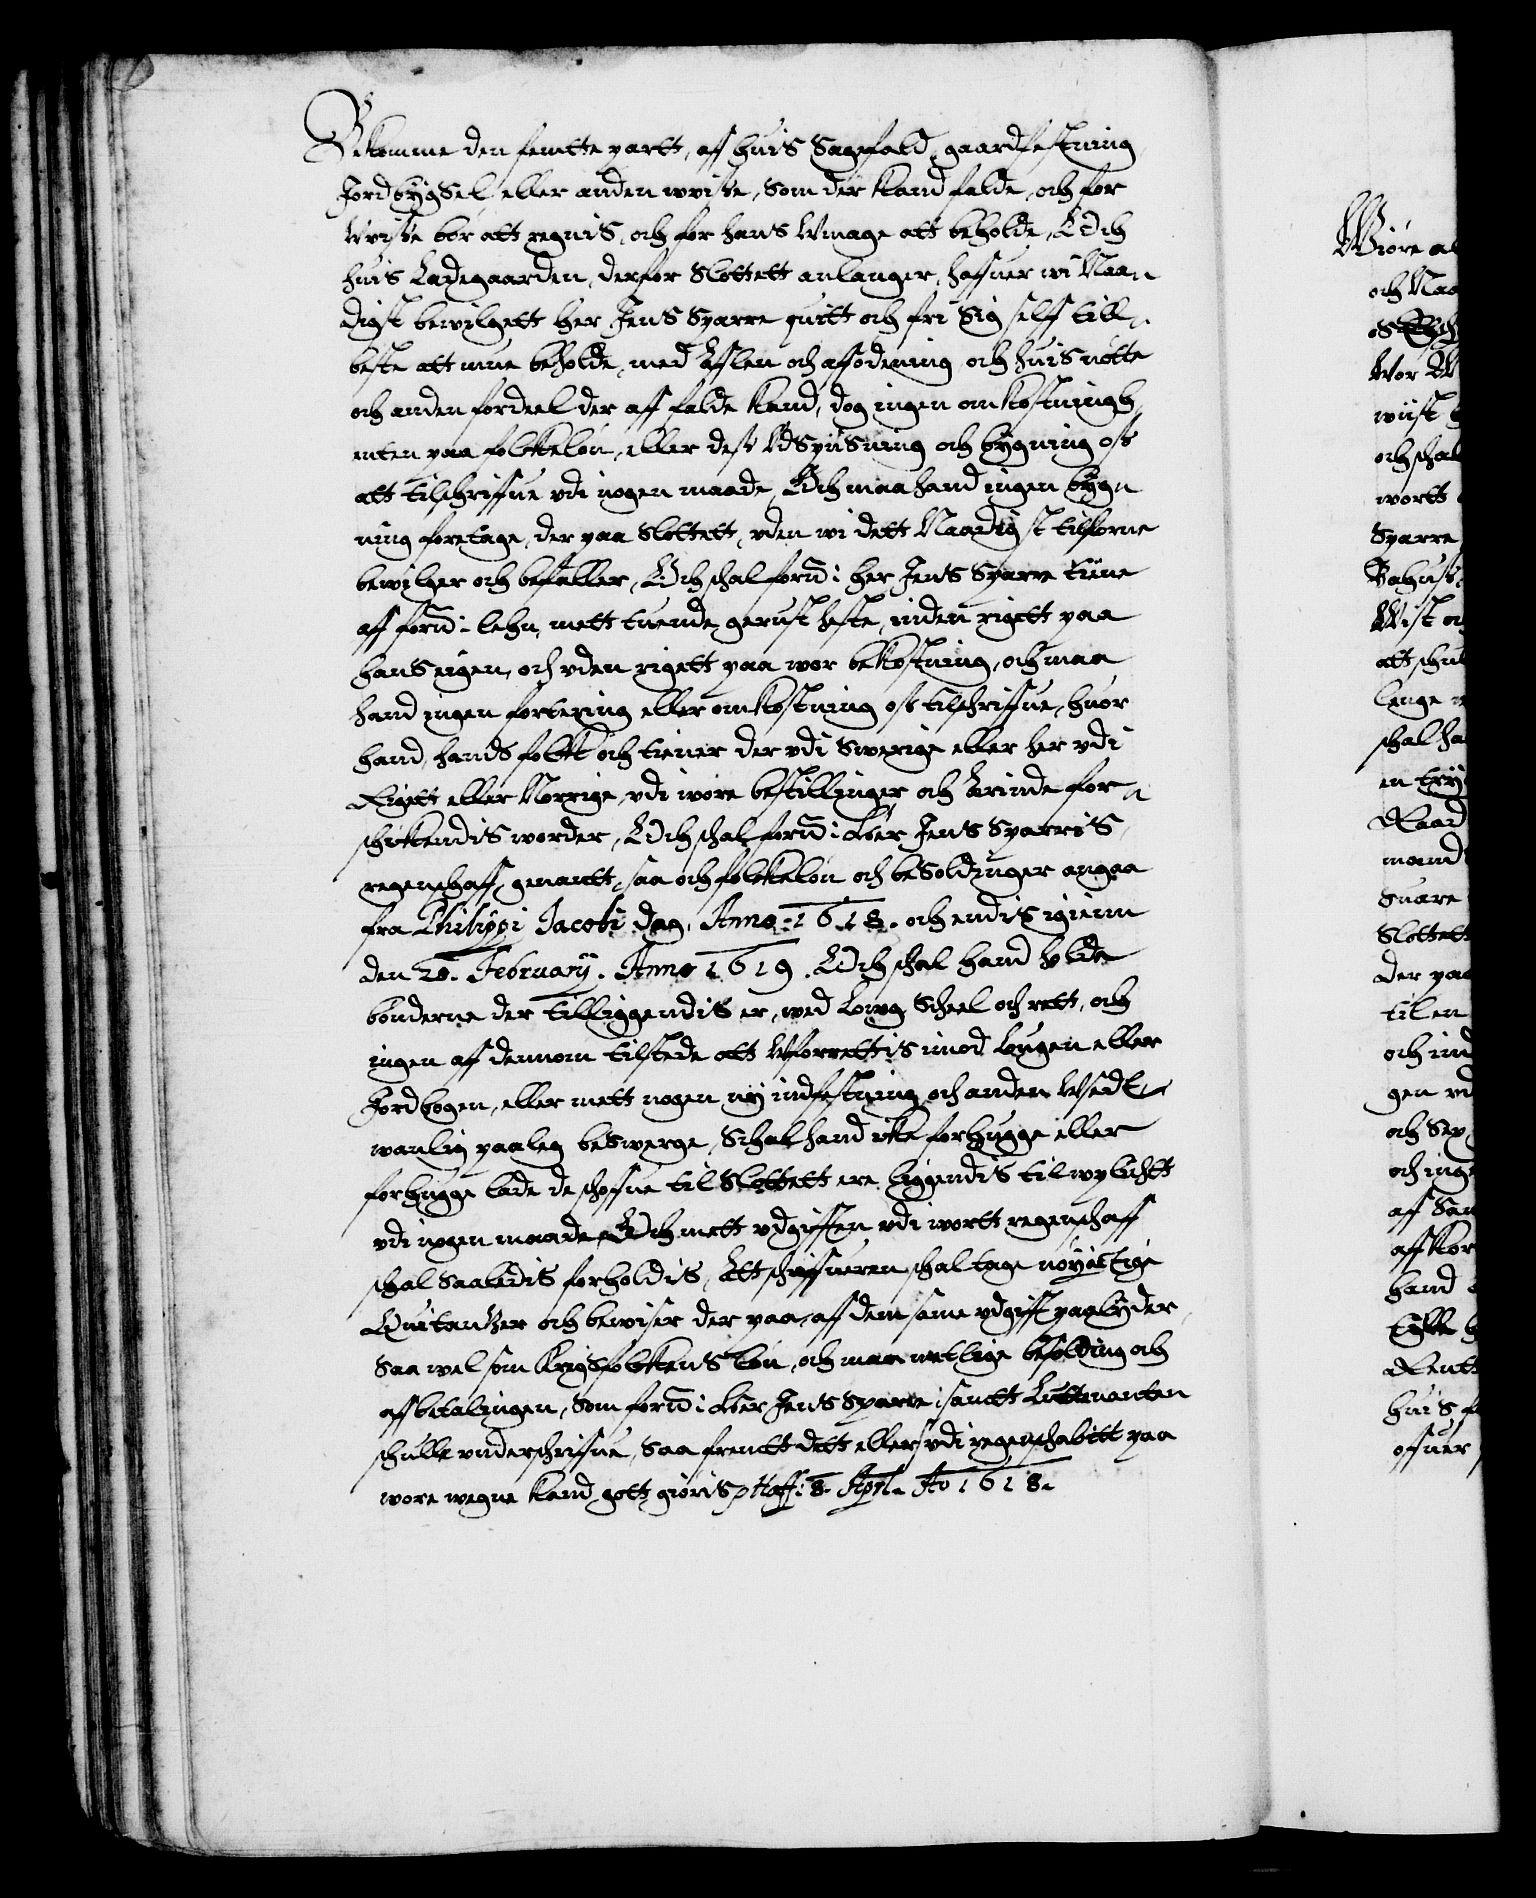 Bekomme den femtte partt, aff huis Sagefald, gaardfestning
Jordbÿgsel, eller anden wviste, som der kand falde, och for
Vviste bør att regnis, och for hans Vmage att beholde, Och
huis Ladegaarden, derfor Slottett anlanger, haffuer wi Naa-
digst bewilgett her Jens Sparre quitt och fri sig self till
beste att mue beholde, med Afflen och affødening och huis nøtte
och anden fordeel der aff falde kand, dog ingen omkostningh
enten paa folkeløn, eller dess Vdspiisning och bÿgning oss
att tilschriffue vdi nogen maade, Och maa hand ingen bÿgn
ning foretage, der paa Slottett, vden wi dett Naadigst tilforne
bewilger och befaller, Och schal fornd: her Jens Sparre tiene
aff fornd: lehn, mett tuende gerust heste, inden rigett paa
hans eigen, och vden rigett paa wor bekostning, och maa
hand ingen fortering eller omkostning oss tilschriffue, huor
hand, hands folk och tiener der vdi Swerige eller her vdi
Rigett eller Norrige, vdi wore bestillinger och Ærinde for-
schikendis worder, Och schal fornd: her Jens Sparris
regenschaff, genantt, saa och folkeløn och besoldinger angaa
fra Philippi Jacobi dag, Anno 1618. och endis igienn
den 20. Februarÿ. Anno 1619. Och schal hand holde
bønderne der tilliggendis er, wed Lowg, Scheel och rett, och
ingen aff dennom tilstede att Vforrettis imod Lougen eller
Jordbogen, eller mett nogen nÿ indfestning och anden Vsed-
wanlig paaleg beswerge, Schal hand ikke forhugge eller
forhugge lade de schoffue til Slottett ere liggendis til wplichtt
vdi nogen maade, Och mett vdgifften vdi wortt regenschaff
schal saaledis forholdis, Att schriffueren schal tage nøÿactige
Quitantzer och bewiser der paa, aff dem same vdgifft paalÿder,
Saa wel som krigsfolkens løn, och maanetlige besolding och
affbetalingen, som fornd: her Jens Sparre i santt Lutttnanten
schulle vnderschriffue, saa fremtt dett ellers vdi regenschabitt paa
wore wegne kand gott giøris Haff: 8. Apri. Ao 1618.

Wiore al
och Naa
Wor
wiist
och schal
wortt
Sparre
Bahuss
Wist och
att schul
lenge
schal ha
en try
Raad
mand
Suare
Slottett
der paa
til en
och ind
gen vd
och Sex
och inge
aff San
aff kor
hand
Tille
Rentt
huis
offuer